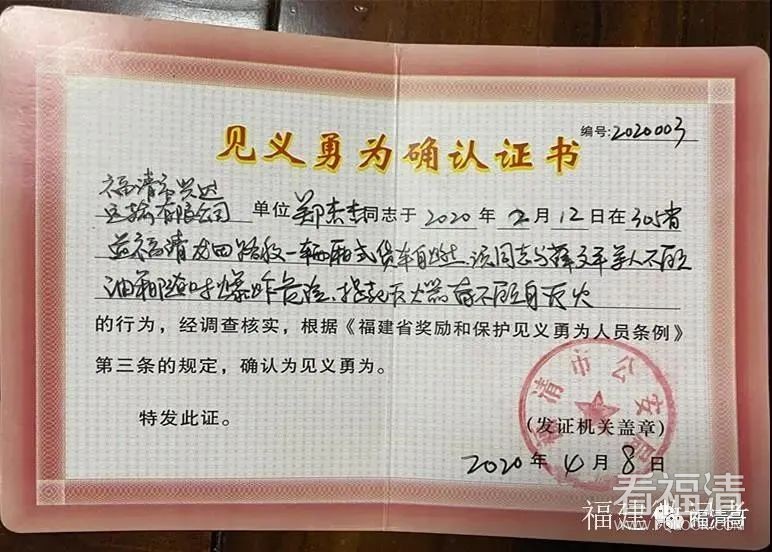 编号:2020003
见义勇为确认证书
福清市兴达
运输有限公司 单位 郑 同志于 2020 年 2 月 12 日在 305省
道福清龙田路段一辆厢式货车自燃,该同志与 文平等人不顾
油箱随时爆炸危险,提起灭火器奋不顾身灭火
的行为，经调查核实，根据《福建省奖励和保护见义勇为人员条例》
第三条的规定，确认为见义勇为。
特发此证。
福清市公安局
(发证机关盖章)
2020 年 4 月 8 日
看福清
福清哥